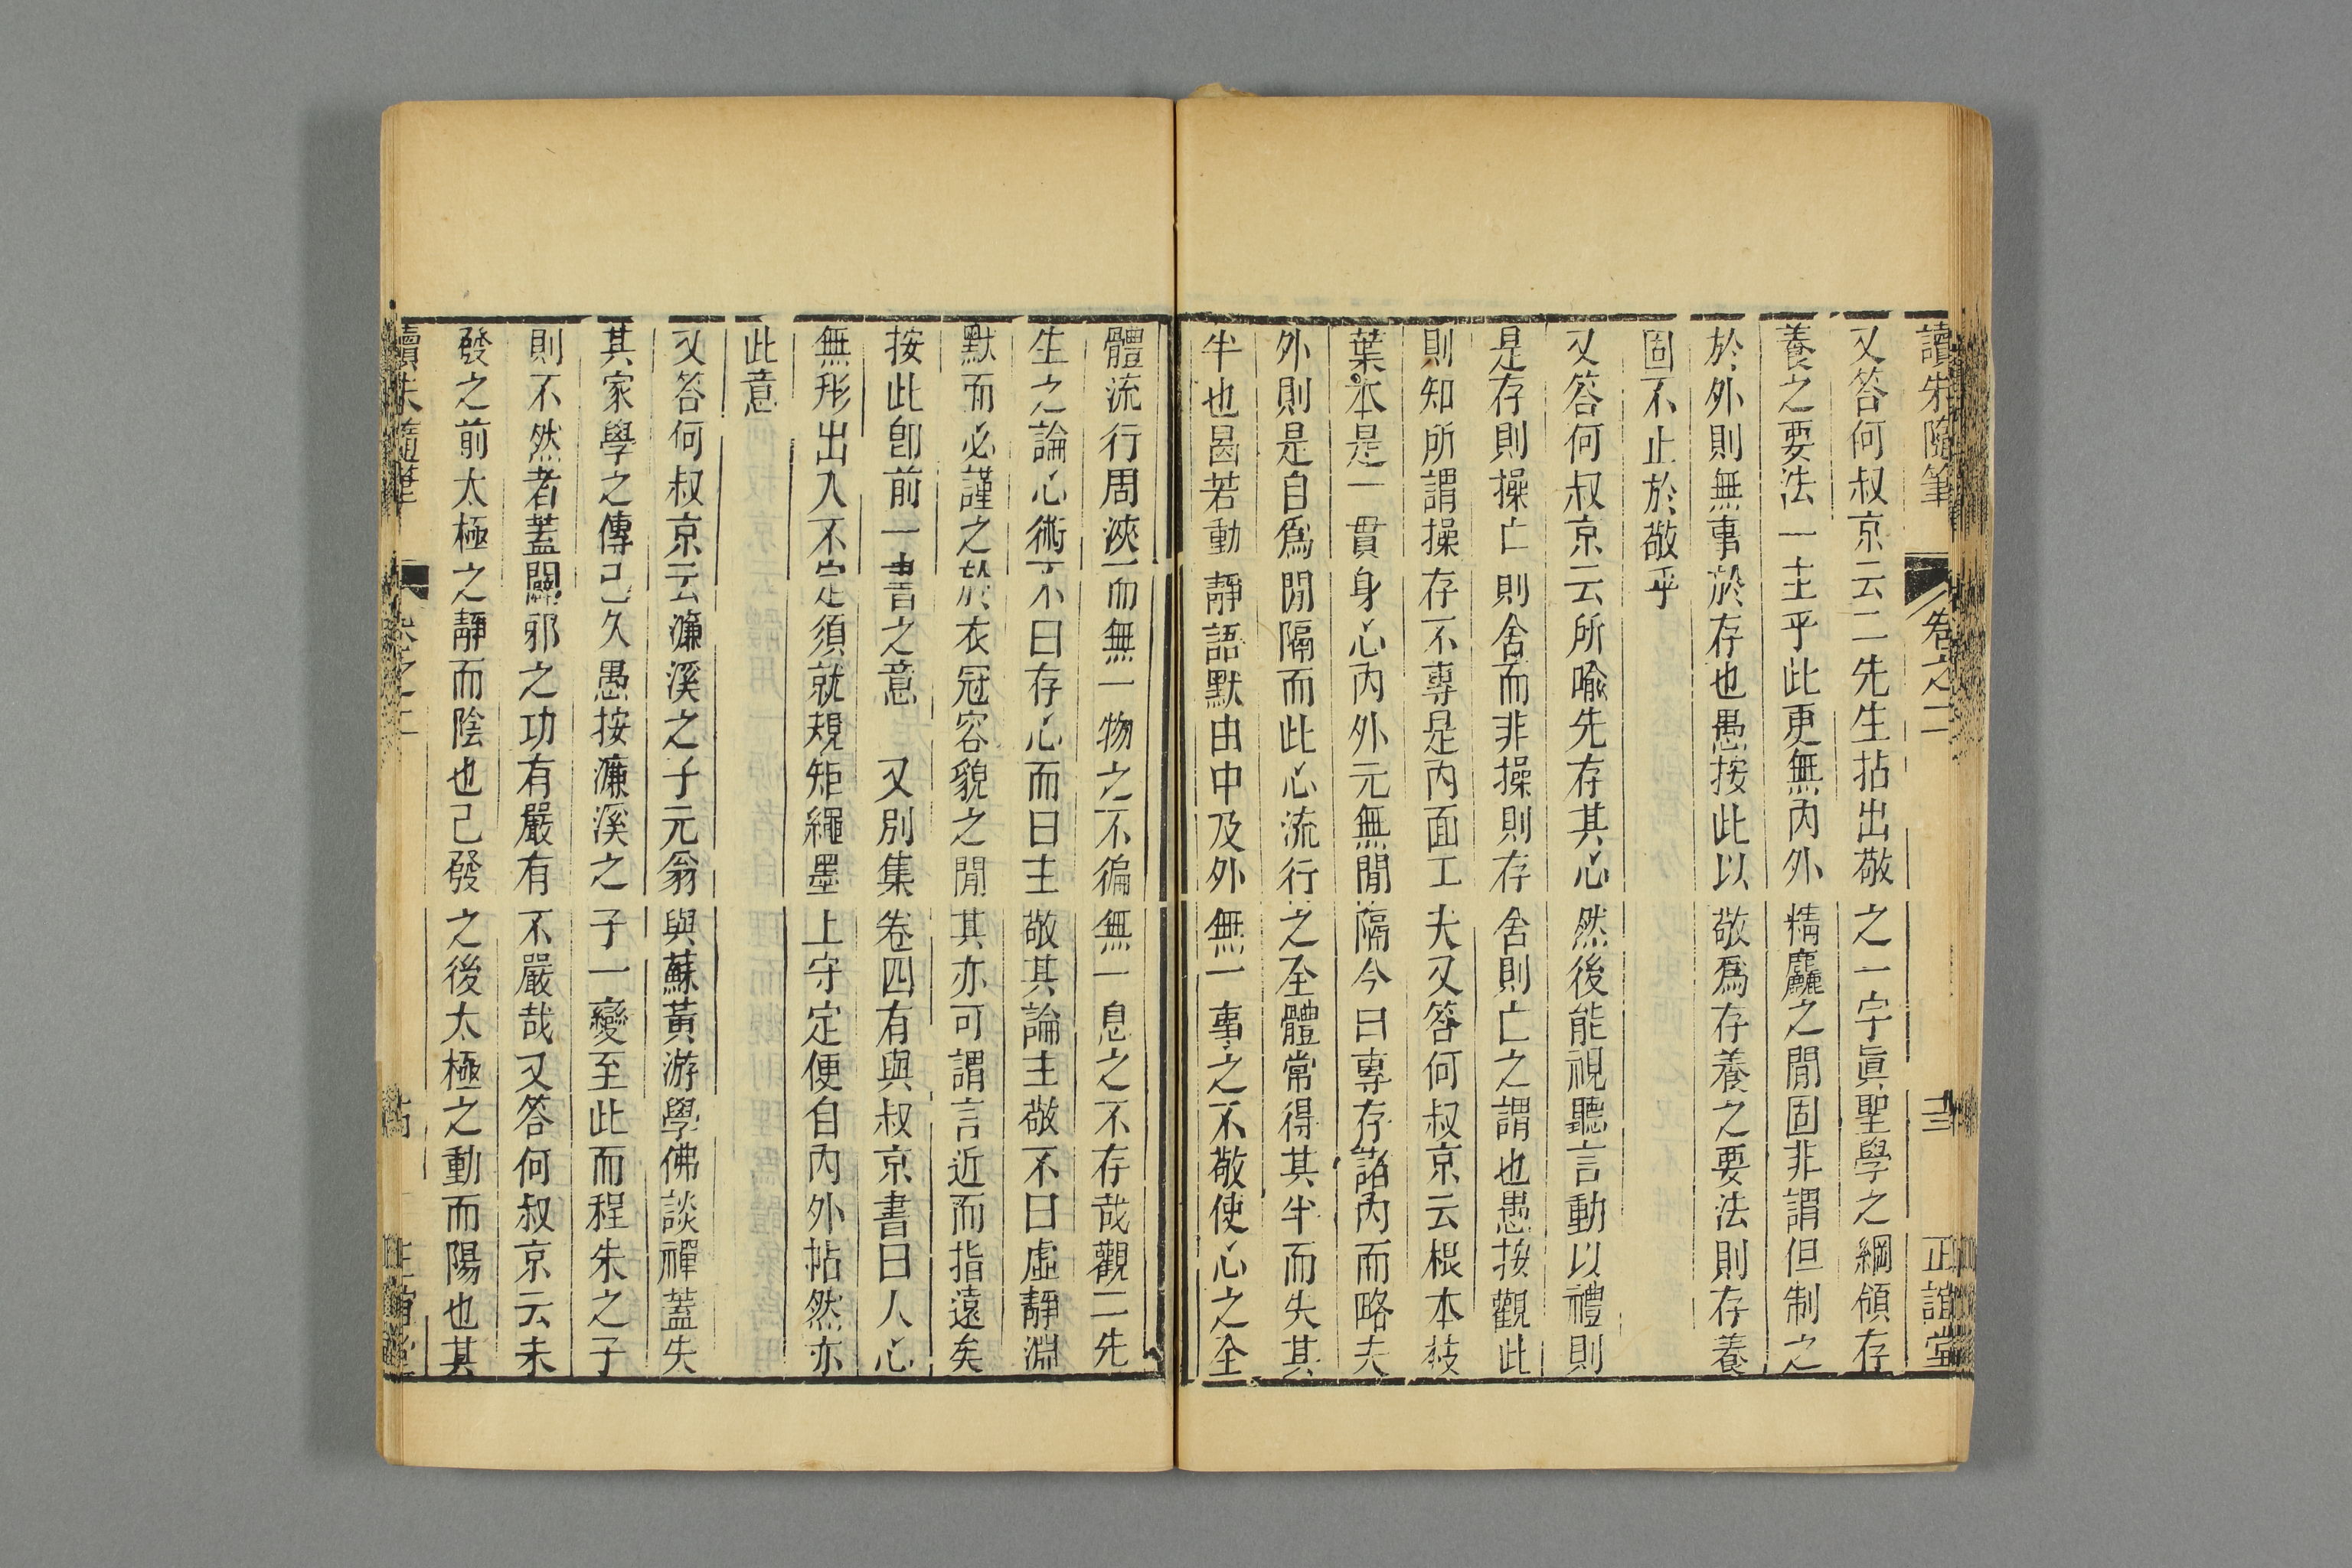 讀朱隨筆 卷之二 三 正誼堂
又答何叔京云二先生拈出敬之一字眞聖學之綱領存
養之要法一主乎此更無內外精麤之閒固非謂但制之
於外則無事於存也愚按此以敬爲存養之要法則存養
固不止於敬乎
又答何叔京云所喻先存其心然後能視聽言動以禮則
是存則操亡則舍而非操則存舍則亡之謂也愚按觀此
則知所謂操存不專是內面工夫又答何叔京云根本枝
葉本是一貫身心內外元無閒隔今曰專存諸內而略夫
外則是自爲閒隔而此心流行之全體常得其半而失其
半也曷若動靜語默由中及外無一事之不敬使心之全
體流行周浹而無一物之不徧無一息之不存哉觀二先
生之論心術不曰存心而曰主敬其論主敬不曰虛靜淵
默而必謹之於衣冠容貌之閒其亦可謂言近而指遠矣
按此卽前一書之意 又別集卷四有與叔京書曰人心
無形出入不定須就規矩繩墨上守定便自內外帖然亦
此意
又答何叔京云濂溪之子元翁與蘇黃游學佛談禪蓋失
其家學之傳已久愚按濂溪之子一變至此而程朱之子
則不然者蓋闢邪之功有嚴有不嚴哉又答何叔京云未
發之前太極之靜而陰也已發之後太極之動而陽也其
讀朱隨筆